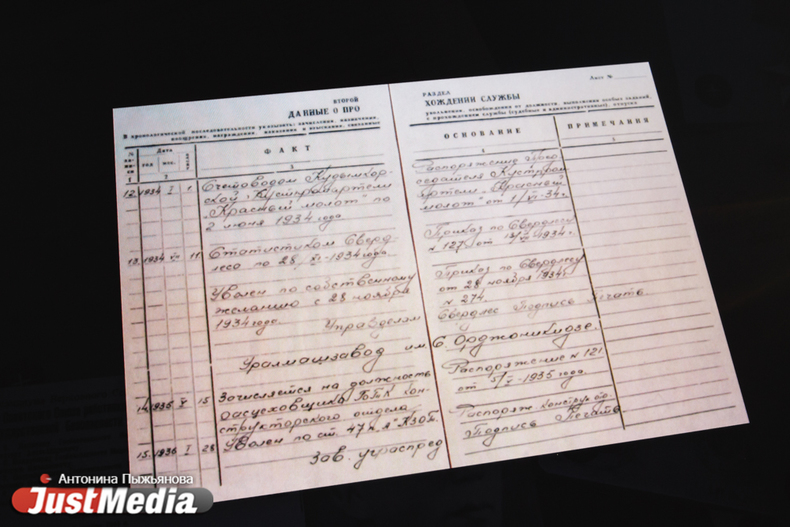 ВТОРОЙ
ДАННЫЕ О ПРО
В хронологической последовательности указать: зачисления назначения,
Дата
год
мес.
число
ФАКТ
1
2
3
12 1934 I 1 Счетоводом Кудымкор-
ской „Кустпромартели
„Красный молот" по
2 июня 1934 года
13 1934 11 Статистиком Сверд-
леса по 28/XI-1934 года.
Уволен по собственному
желанию с 28 ноября
1934 года.
Управделам
Уралмашзавод им.
14 1935 V 15 Зачисляется на должность
БТК кон-
структорского отдела
15 1936 I 28 Уволен по ст. 47 п. „А" КЗОТ.
Зав. учраспред
РАЗДЕЛ
Лист №
ХОЖДЕНИИ СЛУЖБЫ
увольнения, освобождения от должности, выполнения особых заданий,
с прохождением службы (судебные и административные), отпуска
ОСНОВАНИЕ
ПРИМЕЧАНИЯ
4
5
Распоряжение Пред
седателя Кустпром
артели „Красный
молот" от 1/VI-34 г.
Приказ по Свердлесу
№ 127 от 1934 г.
Приказ по Свердлесу
от 28 ноября 1934 г.
№ 274.
Свердлес Подпись Печать.
С. Орджоникидзе.
Распоряжение № 121
от 5/V-1935 года.
Распоряж. Конструк.
Подпись Печать
Антонина Пыжьянова
JustMedia